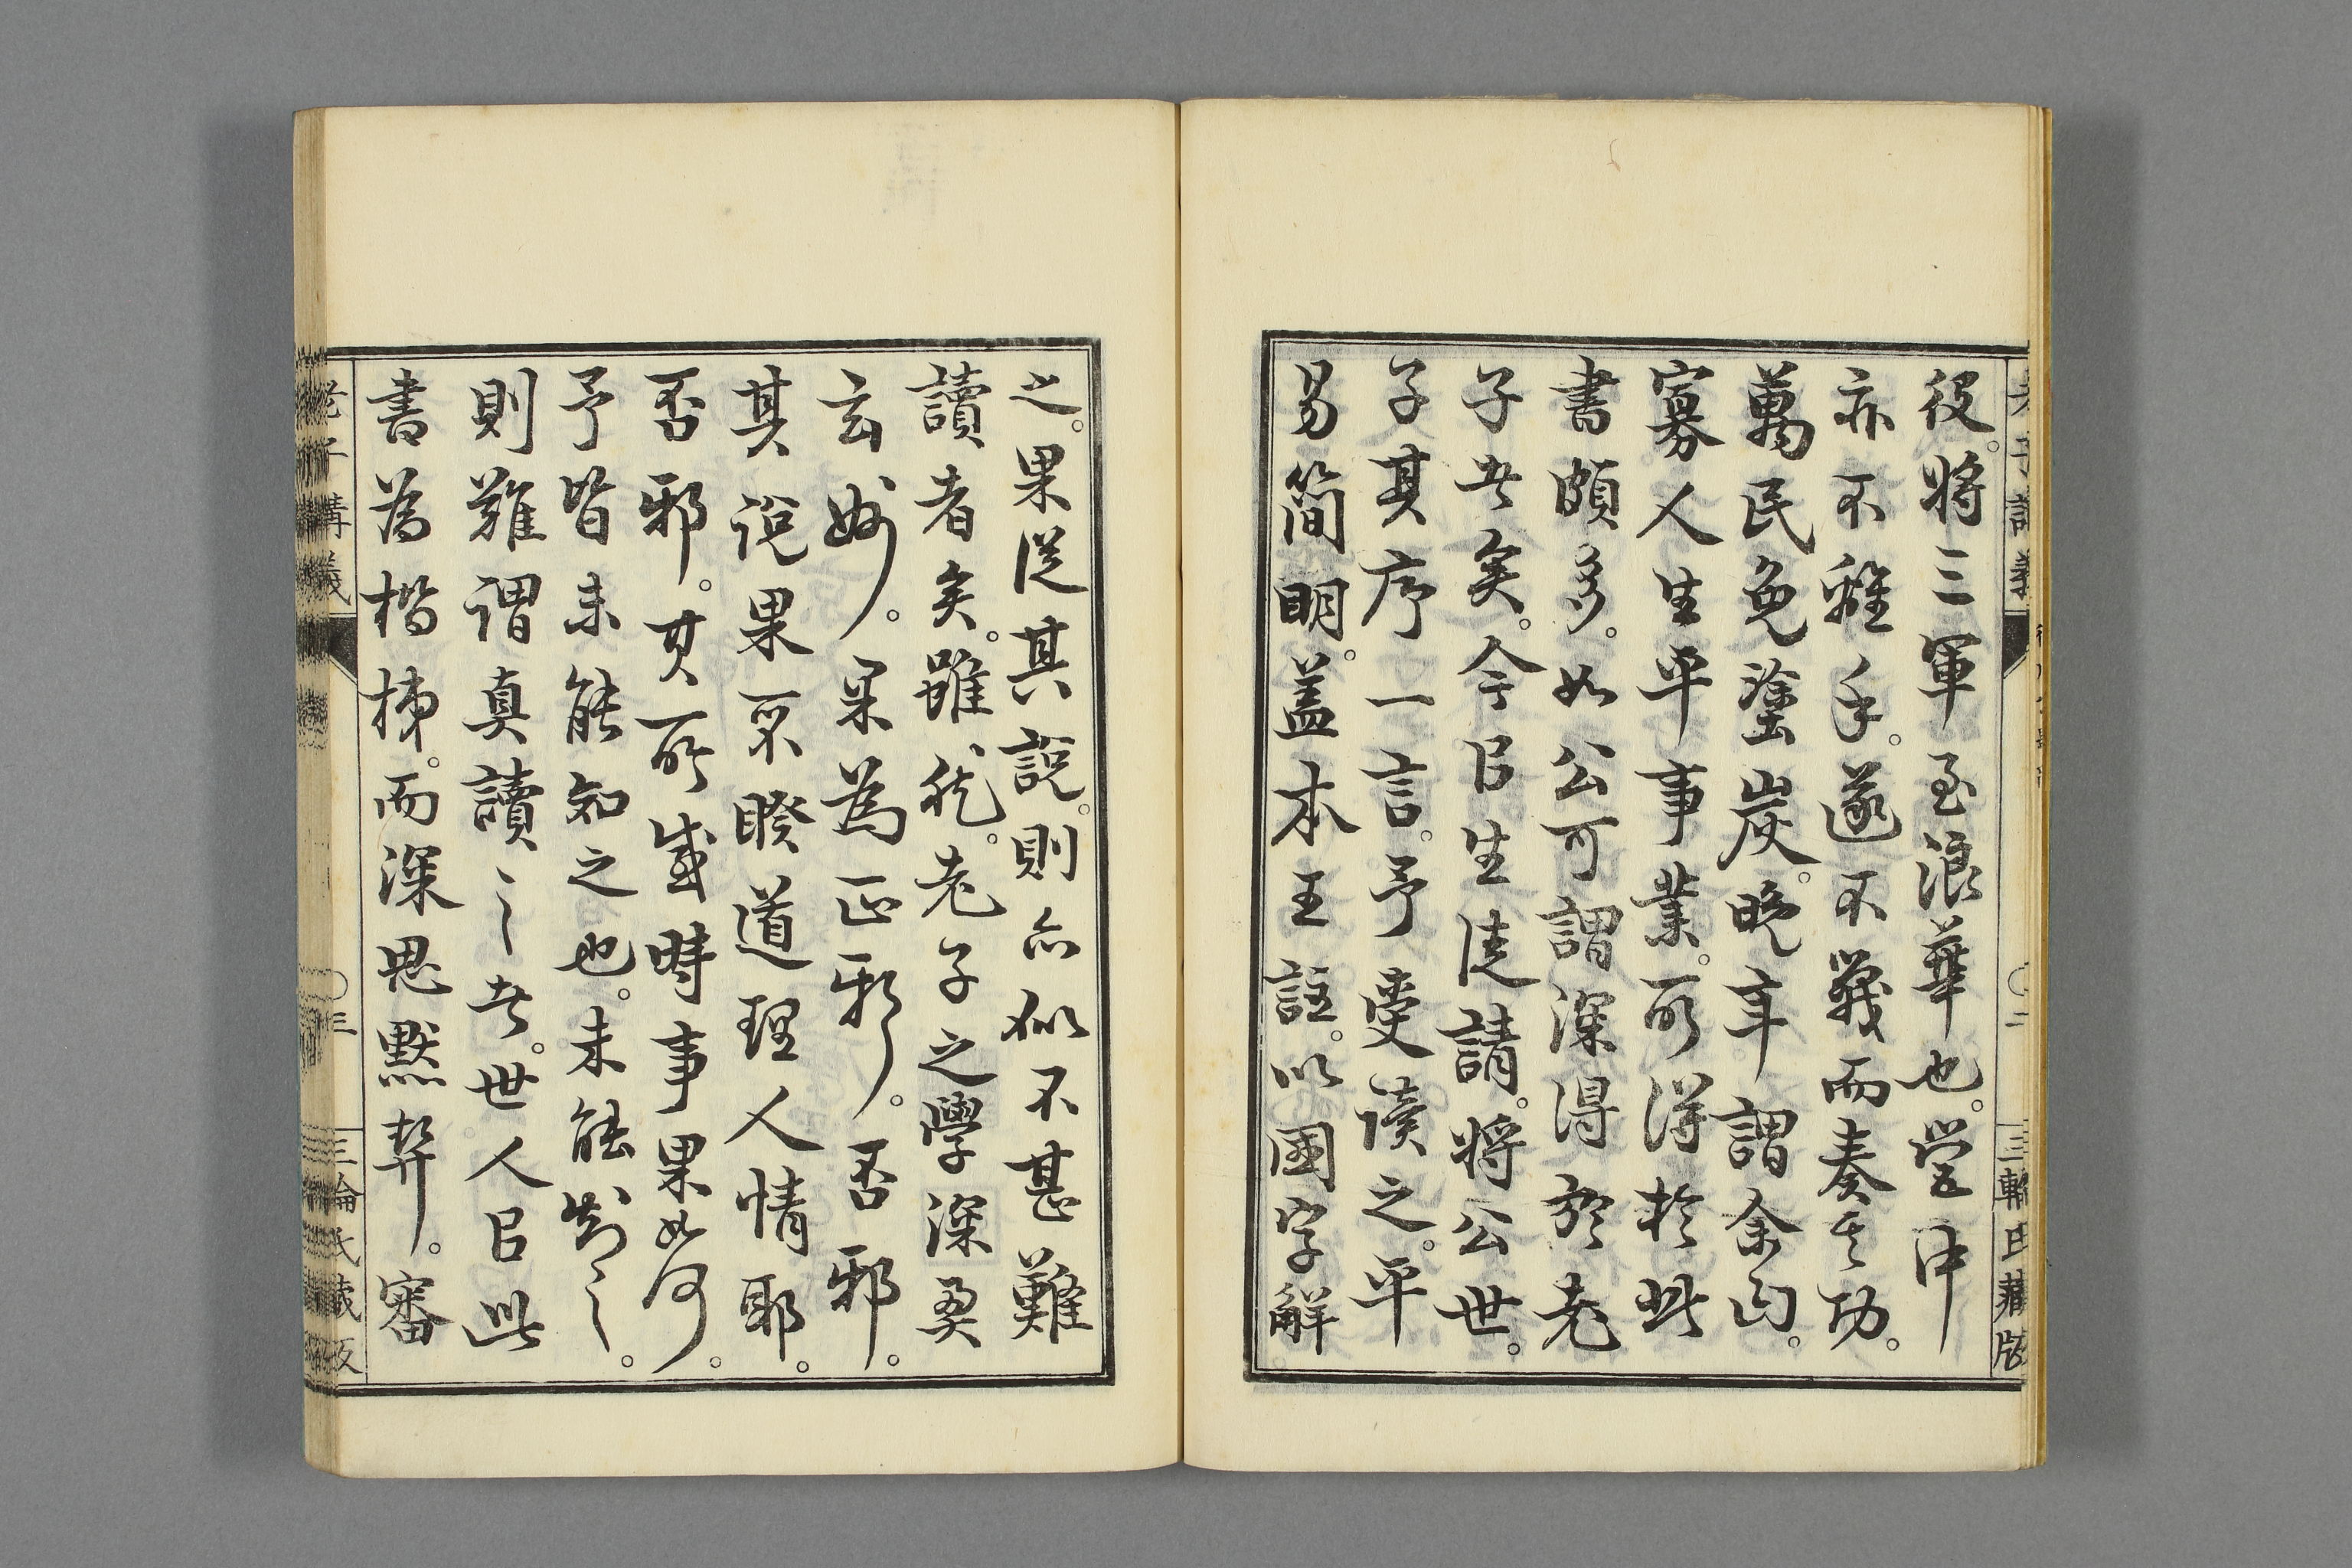 役。將三軍至浪華也。堂中
亦不釋手。遂不戰而奏其功。
萬民免塗炭。晚年謂余曰。
寡人生平事業。所得於此
書頗多。如公可謂深得於老
子者矣。今官生徒請。將公世。
子其序一言。予受讀之。平
易簡明。蓋本王註。以國字解
之。果從其說。則亦似不甚難
讀者矣。雖然。老子之學深奧
玄妙。果為正邪。否邪
其說果不睽道理人情耶。
否邪。其所感時事果如何。
予皆未能知之也。未能知之。
則難謂真讀之者。世人以此
書為楷梯。而深思默契。審
老子講義
〇二
三輪氏藏版
老子講義
〇三
三輪氏藏版